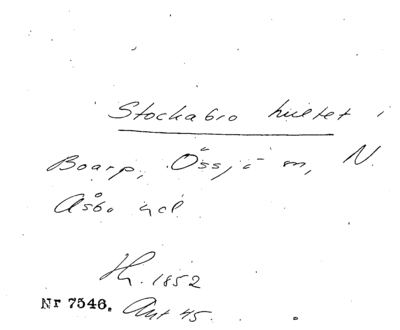 Stockabro hultet i
Boarp, Össjö sn, N.
Åsbo hd
Hz. 1852
Nr 7546. Ant 45.